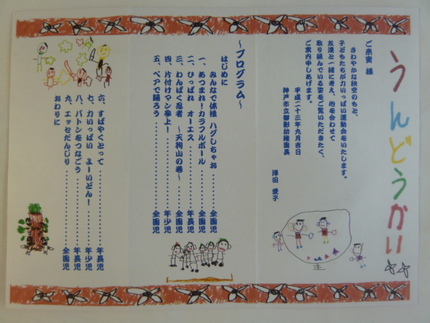 うんどうかい
ご来賓 様
さわやかな秋空のもと、
子どもたちが力いっぱい運動会をいたします。
友達と一緒に考え、力を合わせて
取り組んでいる姿をご覧いただきたく、
ご案内申しあげます。
平成二十三年九月吉日
神戸市立御影幼稚園長
澤田 愛子
～プログラム～
はじめに
みんなで体操 ハグしちゃお………全園児
一、あつまれ！カラフルボール………年少児
二、ひっぱれ オーエス………年長児
三、わんぱく忍者 ～天狗山の巻～………年長児
四、片付けマン参上！………年少児
五、ペアで踊ろう………全園児
六、すばやくとって………年長児
七、力いっぱい よーいどん！………年少児
八、バトンをつなごう………年長児
九、エッサだんじり………全園児
おわりに………全園児